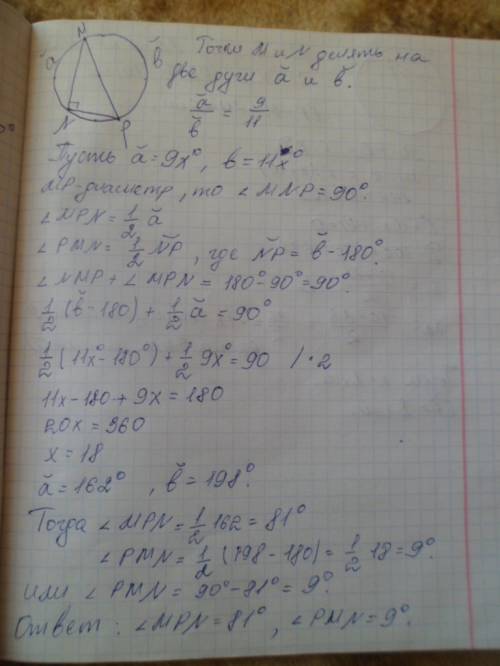 M
ă
b̆
N
P
Точки M и N делять на
две дуги ă и b̆.
ă/b̆ = 9/11
Пусть ă = 9x°, b̆ = 11x°
MP-диаметр, то ∠MNP = 90°.
∠MPN = 1/2 ă
∠PMN = 1/2 N̆P, где N̆P = b̆ - 180°.
∠NMP + ∠MPN = 180° - 90° = 90°.
1/2 (b̆ - 180) + 1/2 ă = 90°
1/2 (11x° - 180°) + 1/2 9x° = 90 / · 2
11x - 180 + 9x = 180
20x = 360
x = 18
ă = 162°, b̆ = 198°.
Тогда ∠MPN = 1/2 162 = 81°
∠PMN = 1/2 (198 - 180) = 1/2 18 = 9°.
или ∠PMN = 90° - 81° = 9°.
Ответ: ∠MPN = 81°, ∠PMN = 9°.